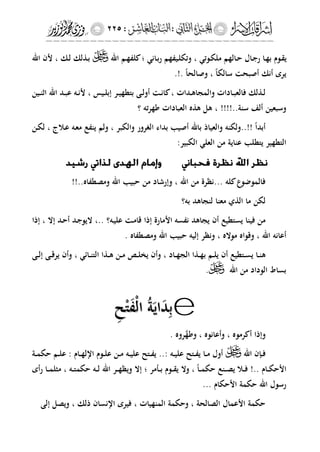 الجزء الثاني : الباب العاشر : ٢٢٥
يقوم بها رجال حالهم ملكوتي ، وتكليفهم رباني ؛ كلفهم الله بذلك لك ، لأن الله
يرى أنك أصبحت سالكاً ، وصالحاً .!.
لذلك فالعبادات والمجاهدات ، كانت أولى بتطهير إبليس ، لأنه عبد الله اثنين
وسبعين ألف سنة..!!!! ، هل هذه العبادات طهرته ؟
أبداً !!..ولكنه والعياذ بالله أصيب بداء الغرور والكبر ، ولم ينفع معه علاج ، لكن
التطهير يتطلب عناية من العلي الكبير:
نظر الله نظرة فحباني وإمام الهدى لذاتي رشيد
فالموضوع كله ...نظرة من الله ، وإرشاد من حبيب الله ومصطفاه..!!
لكن ما الذي معنا لنجاهد به؟
من فينا يستطيع أن يجاهد نفسه الأمارة إذا قامت عليه؟ ..، لايوجد أحد إلا ، إذا
أعانه الله ، وقواه مولاه ، ونظر إليه حبيب الله ومصطفاه .
هنا يستطيع أن يلم بهذا الجهاد ، وأن يخلص من هذا التنائي ، وأن يرقى إلى
بساط الوداد من الله .
بِدَايَةُ الْفَتْحِ
وإذا أكرموه ، وأعانوه ، وطهروه .
فإن الله أول ما يفتح عليه :.. يفتح عليه من علوم الإلهام : علم حكمة
الأحكام ..! فلا يصنع حكماً ، ولا يقوم بأمر ؛ إلا ويظهر الله له حكمته ، مثلما رأى
رسول الله حكمة الأحكام ...
حكمة الأعمال الصالحة ، وحكمة المنهيات ، فيرى الإنسان ذلك ، ويصل إلى